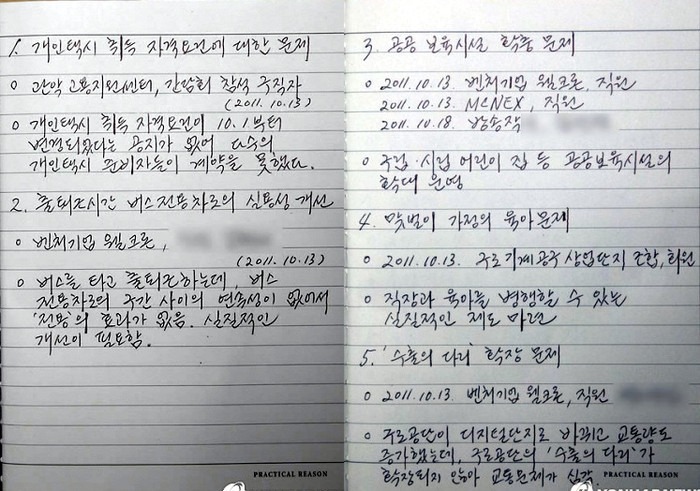 1. 개인택시 취득 자격요건에 대한 문제
o 관악 고용지원센터, 간담회 참석 구직자
(2011. 10. 13)
o 개인택시 취득 자격요건이 10.1부터
변경되었다는 공지가 없어 다수의
개인택시 준비자들이 계약을 못했다.
2. 출퇴근시간 버스전용차로의 실용성 개선
o 벤처기업 웰크론,
(2011. 10. 13)
o 버스를 타고 출퇴근하는데, 버스
전용차로의 구간 사이의 연속성이 없어서
'전용'의 효과가 없음. 실질적인
개선이 필요함.
PRACTICAL REASON
3. 공공 보육시설 확충 문제
o 2011. 10. 13. 벤처기업 웰크론, 직원
2011. 10. 13. MCNEX, 직원
2011. 10. 18. 방송작
o 국립·시립 어린이 집 등 공공보육시설의
확대 운영
4. 맞벌이 가정의 육아문제
o 2011. 10. 13. 구로기계공구상업단지 조합, 회원
o 직장과 육아를 병행할 수 있는
실질적인 제도 마련
5. '수출의 다리' 확장 문제
o 2011. 10. 13. 벤처기업 웰크론, 직원
o 구로공단이 디지털단지로 바뀌고 교통량도
증가했는데, 구로공단의 '수출의 다리'가
확장되지 않아 교통문제가 심각
PRACTICAL REASON